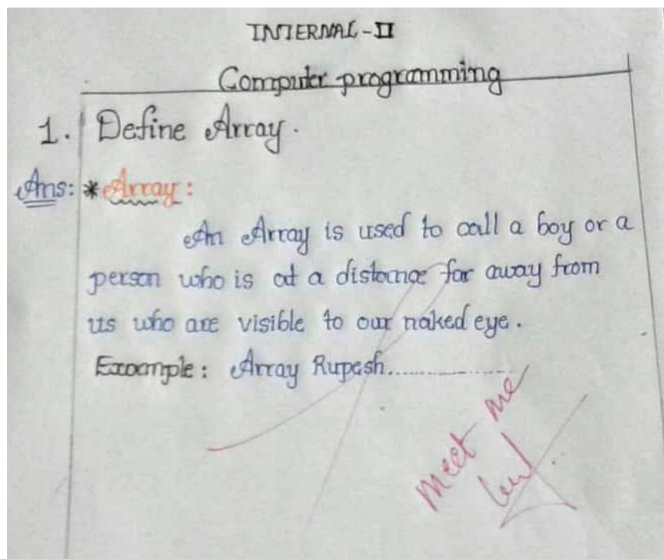 INTERNAL-II
Computer programming
1. Define Array.
Ans: *Array:
An Array is used to call a boy or a
person who is at a distance far away from
us who are visible to our naked eye.
Example: Array Rupesh..................
meet me